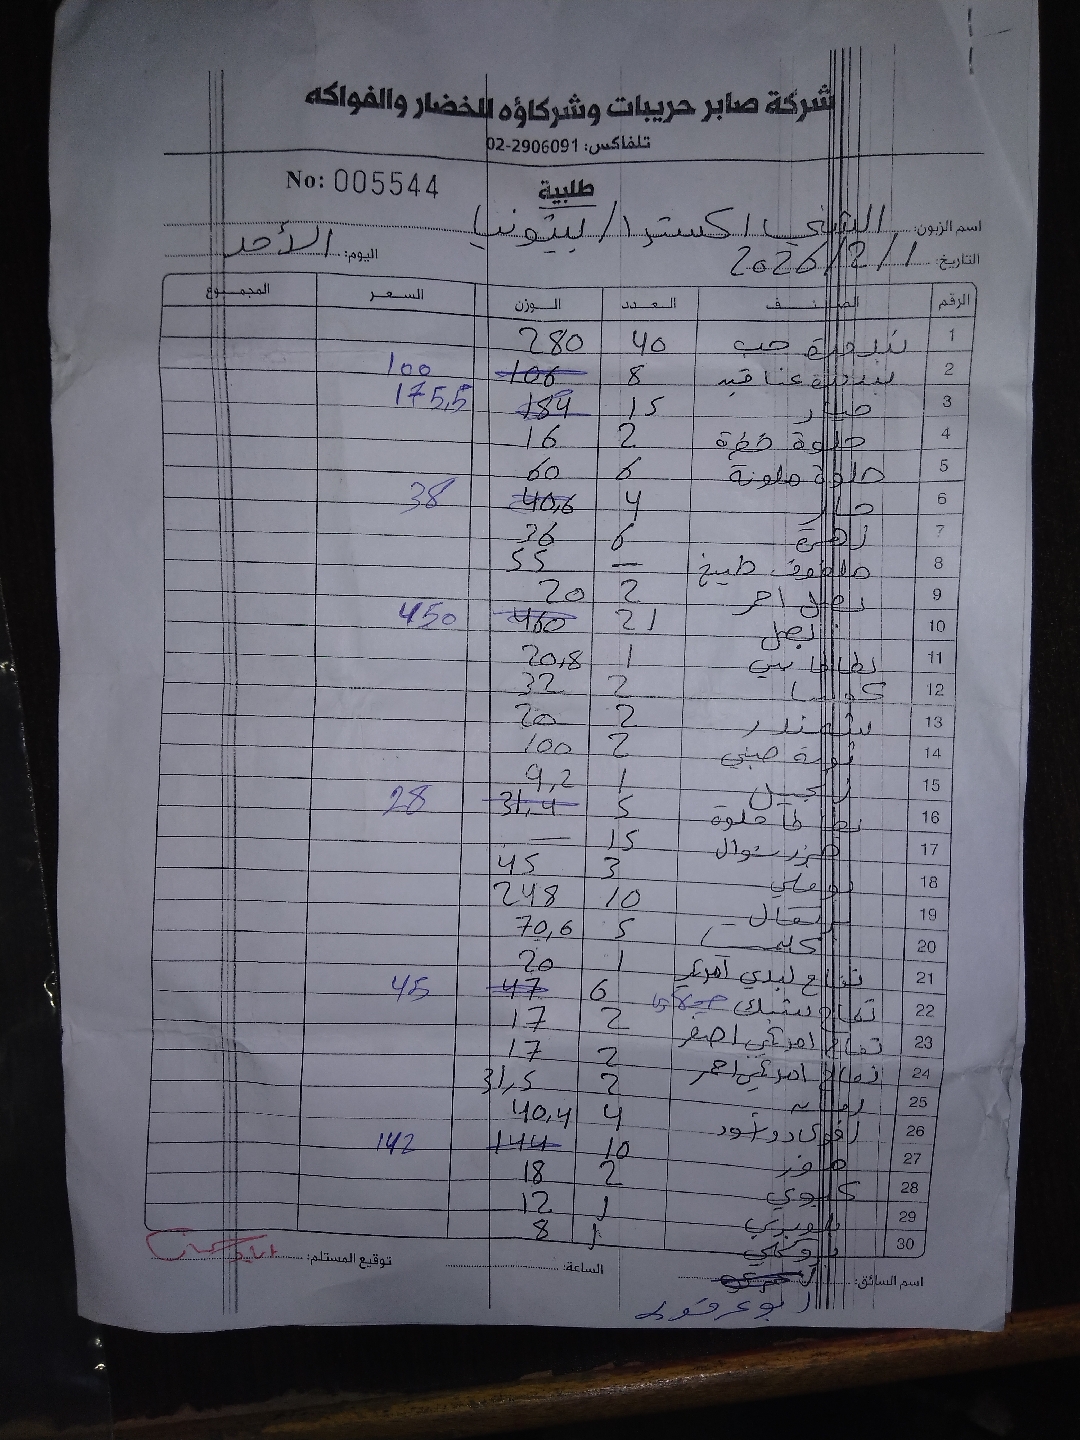 شركة صابر حريبات وشركاؤه للخضار والفواكه
تلفاكس: 02-2906091
No: 005544
طلبية
اسم الزبون: الشني اكسترا / بيتونيا
التاريخ: 2026/2/1 اليوم: الأحد
الرقم الصنف العدد الوزن السعر المجموع
1 بندورة حب 40 280
2 بندورة عناقيد 8 106 100
3 خيار 15 184 175,5
4 حلوة خضرة 2 16
5 حلوة ملونة 6 60
6 حار 4 40,6 38
7 زهرة 6 36
8 ملفوف طبيخ — 55
9 بصل احمر 2 20
10 بصل 21 460 450
11 بطاطا بيبي 1 20,8
12 كوسا 2 32
13 شمندر 2 20
14 ثومة صيني 2 100
15 زنجبيل 1 9,2
16 بطاطا حلوة 5 31,4 28
17 جزر شوال 15 —
18 بوملي 3 45
19 برتقال 10 248
20 5 70,6
21 تفاح ليدي امريكي 1 20
22 تفاح ستيك 6 47 45
23 تفاح امريكي اصفر 2 17
24 تفاح امريكي احمر 2 17
25 2 31,5
26 افوكادو اسود 4 40,4
27 موز 10 144 142
28 كيوي 2 18
29 بلوبيري 1 12
30 بروكلي 1 8
اسم السائق: الساعة: توقيع المستلم:
ابو عرقوب